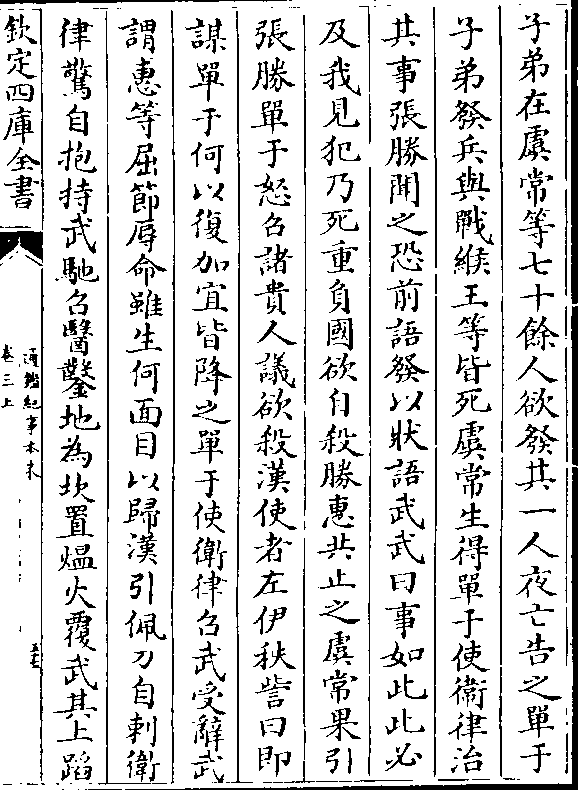 子弟在虞常等七十餘人欲發其一人夜亡告之單于
子弟發兵與戰緱王等皆死虞常生得單于使衞律治
其事張勝聞之恐前語發以狀語武武曰事如此此必
及我見犯乃死重負國欲自殺勝惠共止之虞常果引
張勝單于怒召諸貴人議欲殺漢使者左伊秩訾曰即
謀單于何以復加宜皆降之單于使衛律召武受辭武
謂惠等屈節辱命雖生何面目以歸漢引佩刀自刺衛
律驚自抱持武馳召醫鑿地為坎置煴火覆武其上蹈
欽定四庫全書
通鑑紀事本末
卷三上